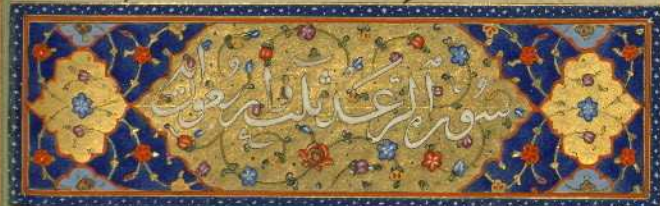 سورة الرعد ثلث اربعون آية